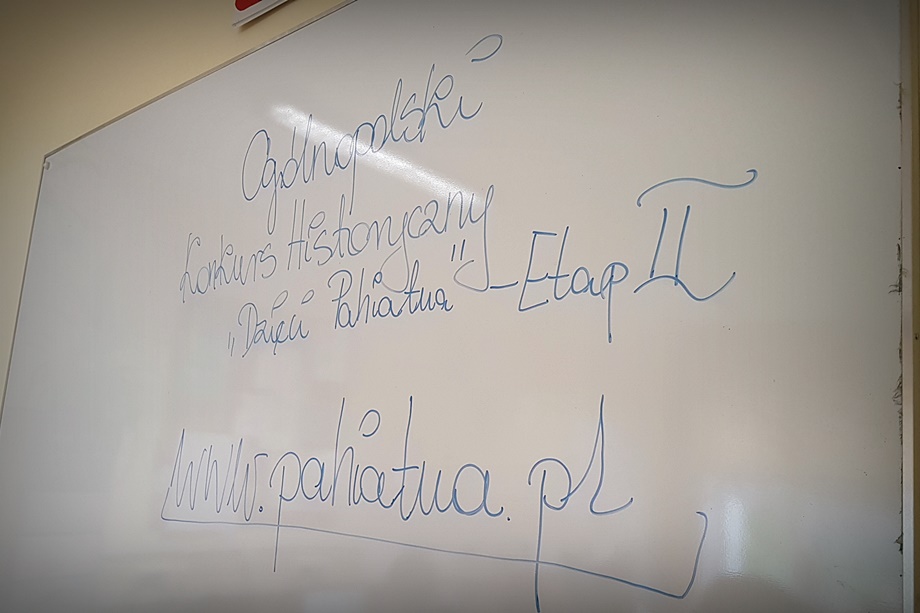 Ogólnopolski
Konkurs Historyczny
„Dzieci Pahiatua" – Etap II
www.pahiatua.pl